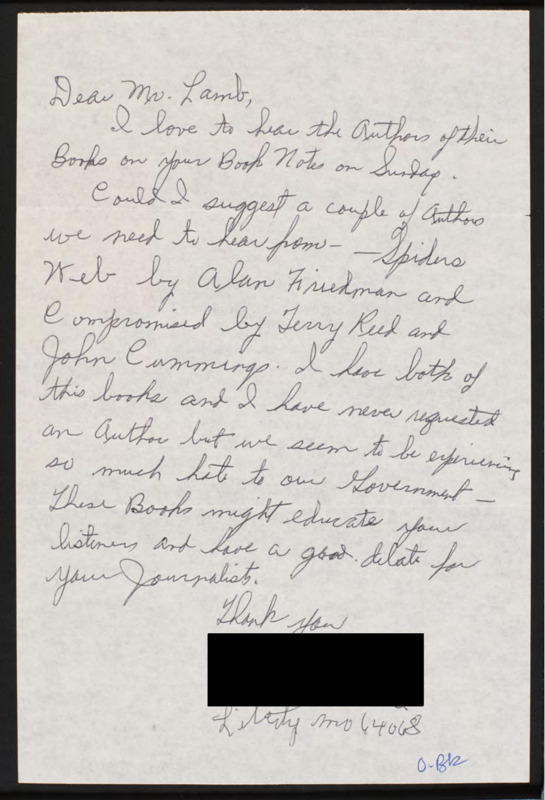 Dear Mr. Lamb,
I love to hear the Authors of their
Books on your Book Notes on Sunday.
Could I suggest a couple of Authors
we need to hear from - - Spiders
Web by Alan Friedman and
Compromised by Terry Reed and
John Cummings. I have both of
this books and I have never requested
an Author but we seem to be
so much hate to our Government -
These Books might educate your
listeners and have a good debate for
your Journalist.
Thank you
Liberty Mo 64068
O-Bk